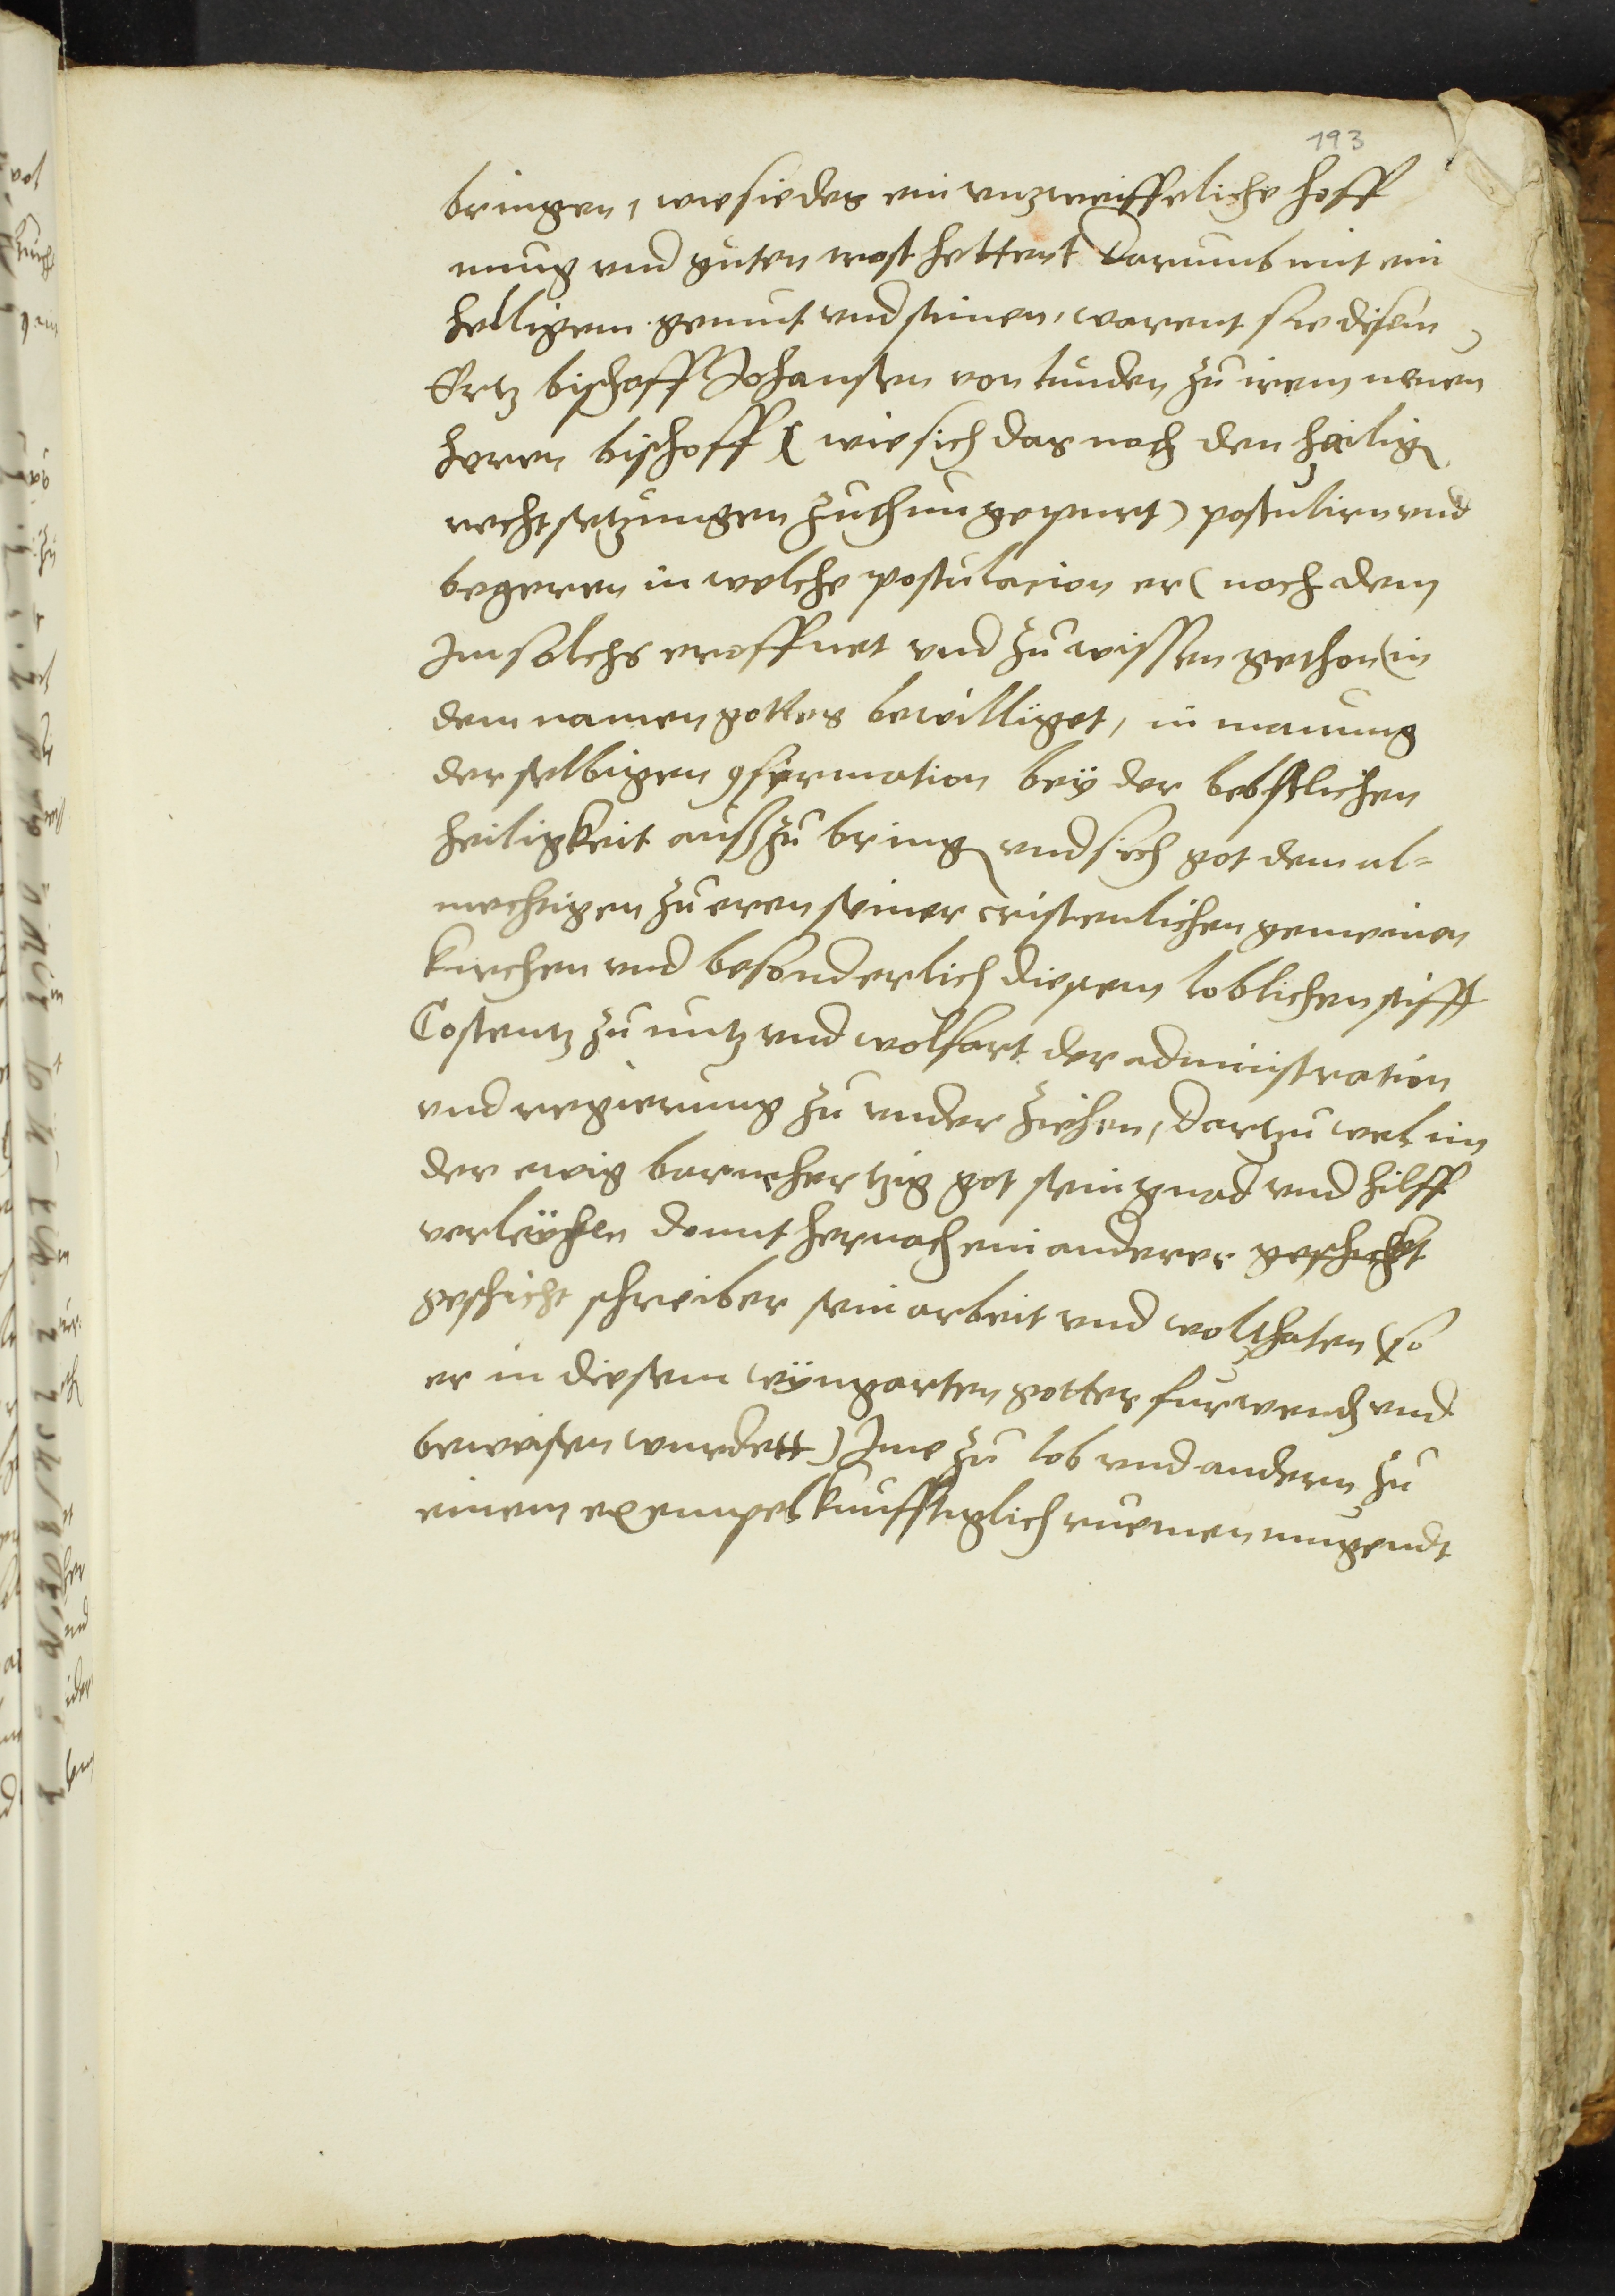 193
bringen, wie sie des ein unzweiffeliche hoff
nung und guten trost hettent Darumb mit ein
helligem gemut und stimen, warent sie disem
Ertz bischoff Johansen von Lunden zu irem neuen
heren bischoff (wie sich das nach den heilig
recht setzungen zuthun gepurt) postulirn und
begeren in welche postulacion er (noch dem
Im solchs eroffnet und zu wissen gethon) in
dem namen gottes bewilliget, in manung
der selbigen 9firmation beÿ der bebstlichen
heiligkeit ausszu bring und sich got dem al=
mechtigen zu eren seiner cristenlichen gemeinen
kirchen und besonderlich diesem loblichen stifft
Costentz zu nutz und wolfart der administration
und regierung zu under ziehen, Dartzu wel im
der ewig barmhertzig got sein gnad und hilff
verleÿhen domit hernach ein anderer geschicht
geschicht schreiber sein arbeit und wolthaten (so
er in diesem wÿngarten gottes furwend und
beweisen wurdett) Ime zu lob und andern zu
einem exempel kunfftiglich ruemen mugendt